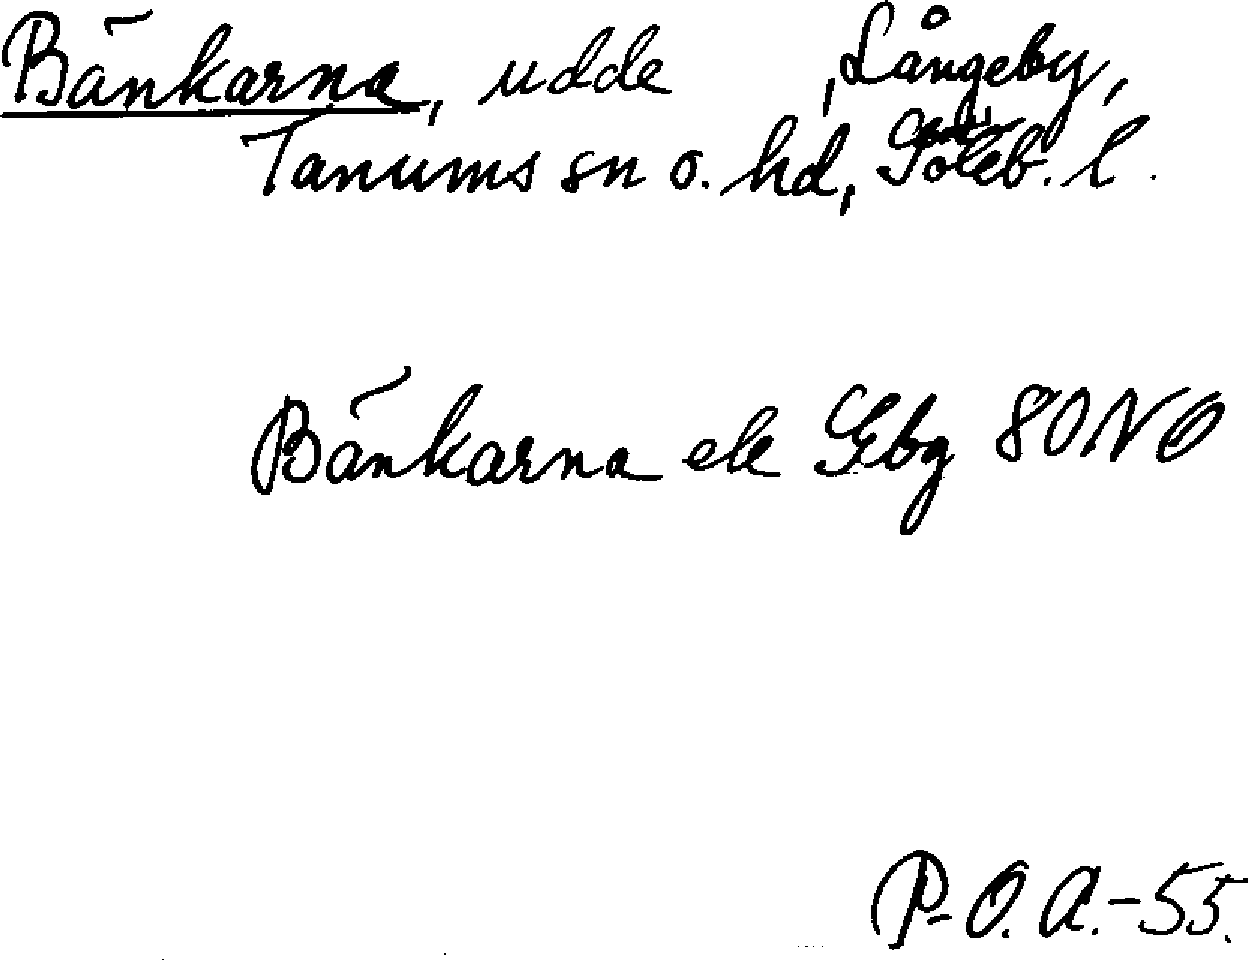 Bänkarna, udde , Långeby,
Tanums sn o. hd, Göteb. l.
Bänkarna ek Gbg 80NO
P-O.A.-55.